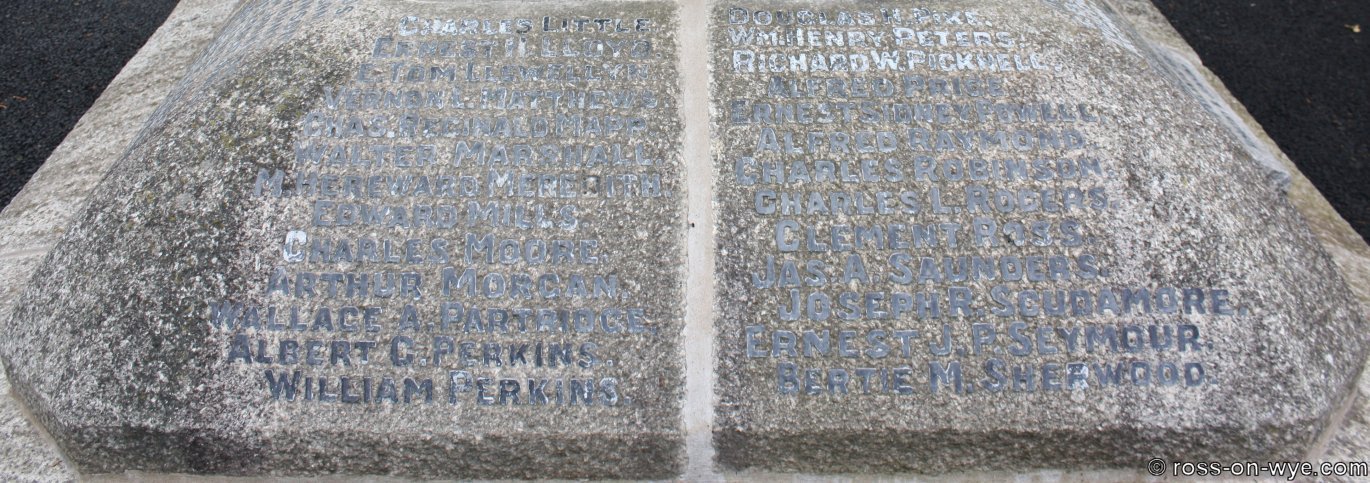 CHARLES LITTLE
ERNEST H. LLOYD.
E. TOM LLEWELLYN
VERNON L. MATTHEWS.
CHAS. REGINALD MAPP.
WALTER MARSHALL.
M. HEREWARD MEREDITH.
EDWARD MILLS.
CHARLES MOORE.
ARTHUR MORGAN.
WALLACE A. PARTRIDGE.
ALBERT G. PERKINS.
WILLIAM PERKINS.
DOUGLAS H. PIKE.
WM. HENRY PETERS.
RICHARD W. PICKNELL.
ALFRED PRICE
ERNEST SIDNEY POWELL
ALFRED RAYMOND.
CHARLES ROBINSON.
CHARLES L. ROGERS.
CLEMENT ROSS.
JAS A. SAUNDERS.
JOSEPH R. SCUDAMORE.
ERNEST J. P. SEYMOUR.
BERTIE M. SHERWOOD.
© ross-on-wye.com